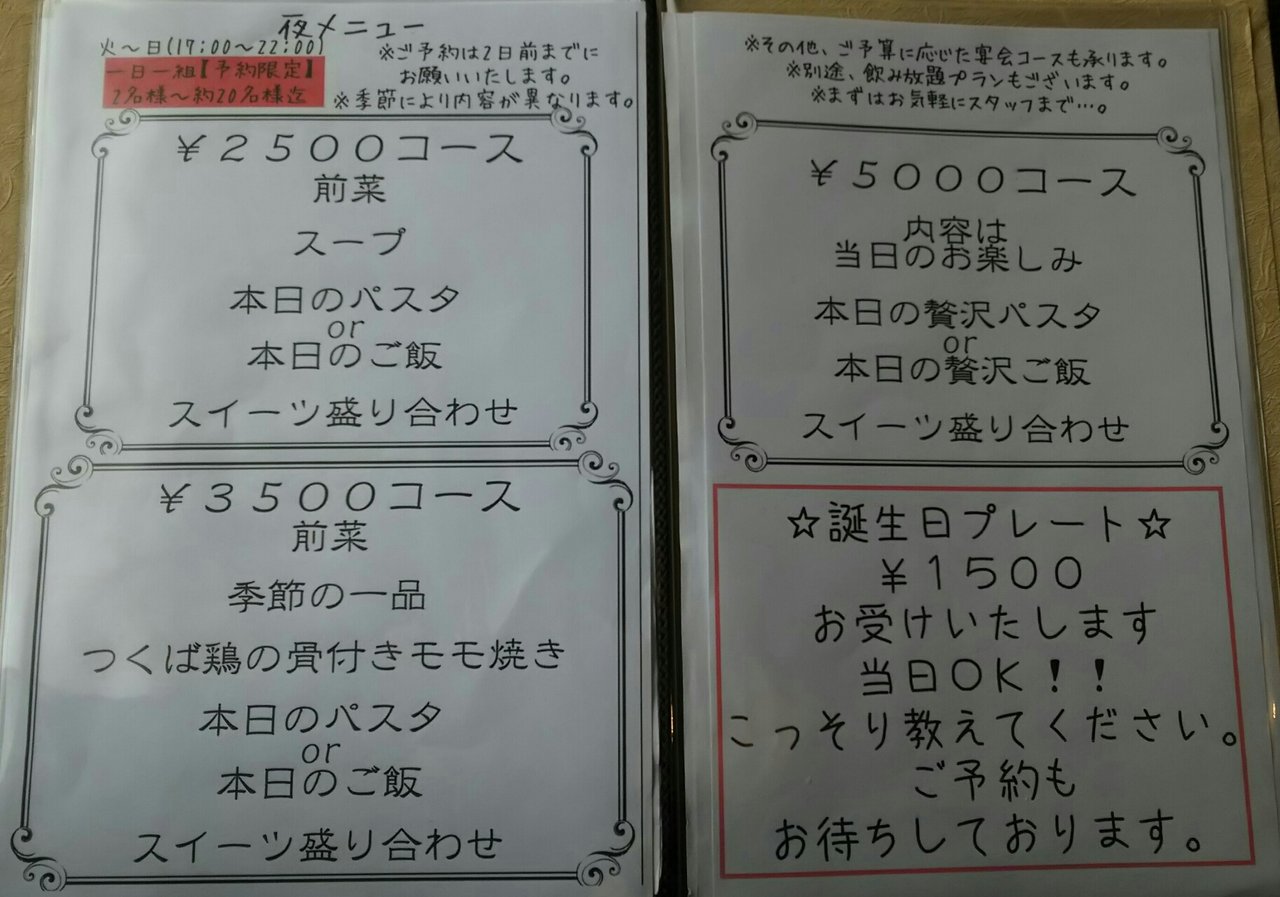 夜メニュー
火～日(17:00～22:00)
一日一組【予約限定】
2名様～約20名様迄
※ご予約は2日前までに
お願いいたします。
※季節により内容が異なります。
￥２５００コース
前菜
スープ
本日のパスタ
or
本日のご飯
スイーツ盛り合わせ
￥３５００コース
前菜
季節の一品
つくば鶏の骨付きモモ焼き
本日のパスタ
or
本日のご飯
スイーツ盛り合わせ
※その他、ご予算に応じた宴会コースも承ります。
※別途、飲み放題プランもございます。
※まずはお気軽にスタッフまで…。
￥５０００コース
内容は
当日のお楽しみ
本日の贅沢パスタ
or
本日の贅沢ご飯
スイーツ盛り合わせ
☆誕生日プレート☆
￥１５００
お受けいたします
当日ＯＫ！！
こっそり教えてください。
ご予約も
お待ちしております。